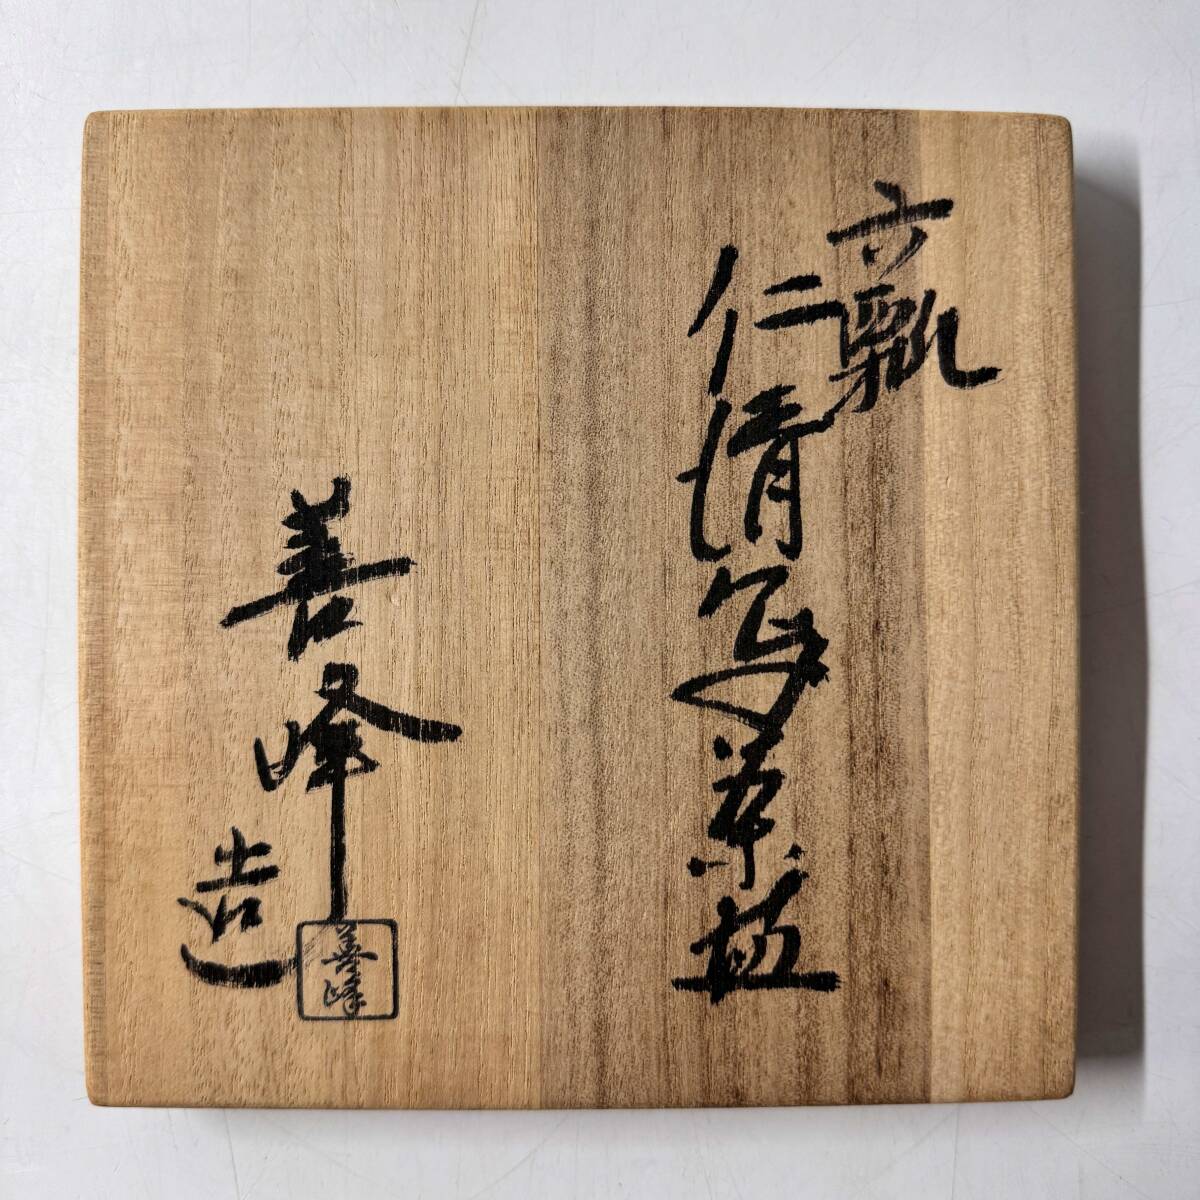 六瓢
仁清写茶碗
善峰造
善峰